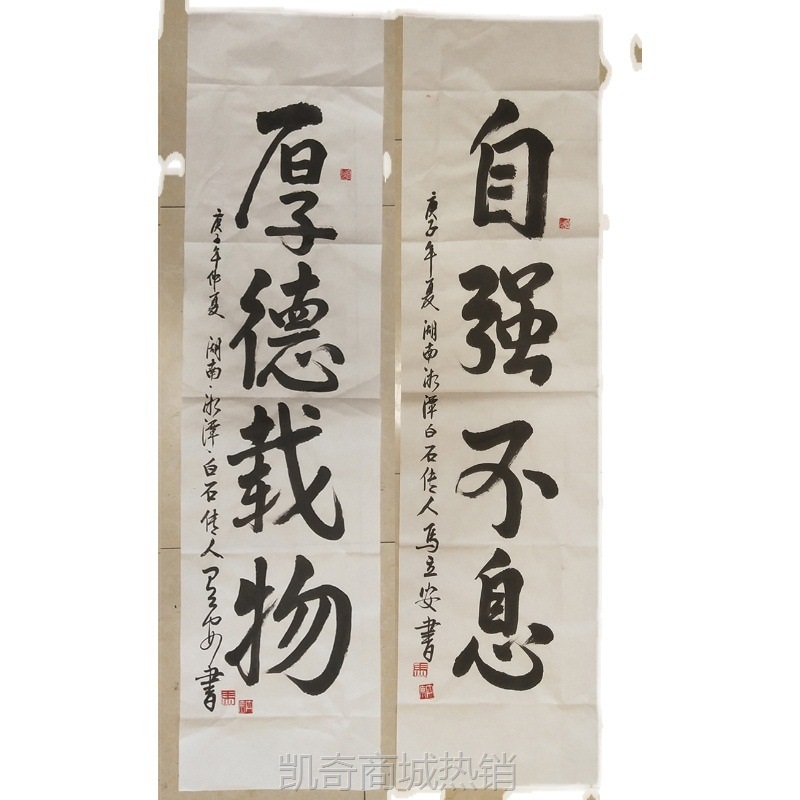 自强不息
庚子年夏 湖南湘潭白石传人馬立安書
厚德载物
庚子年仲夏 湖南湘潭白石传人馬立安書
凯奇商城热销